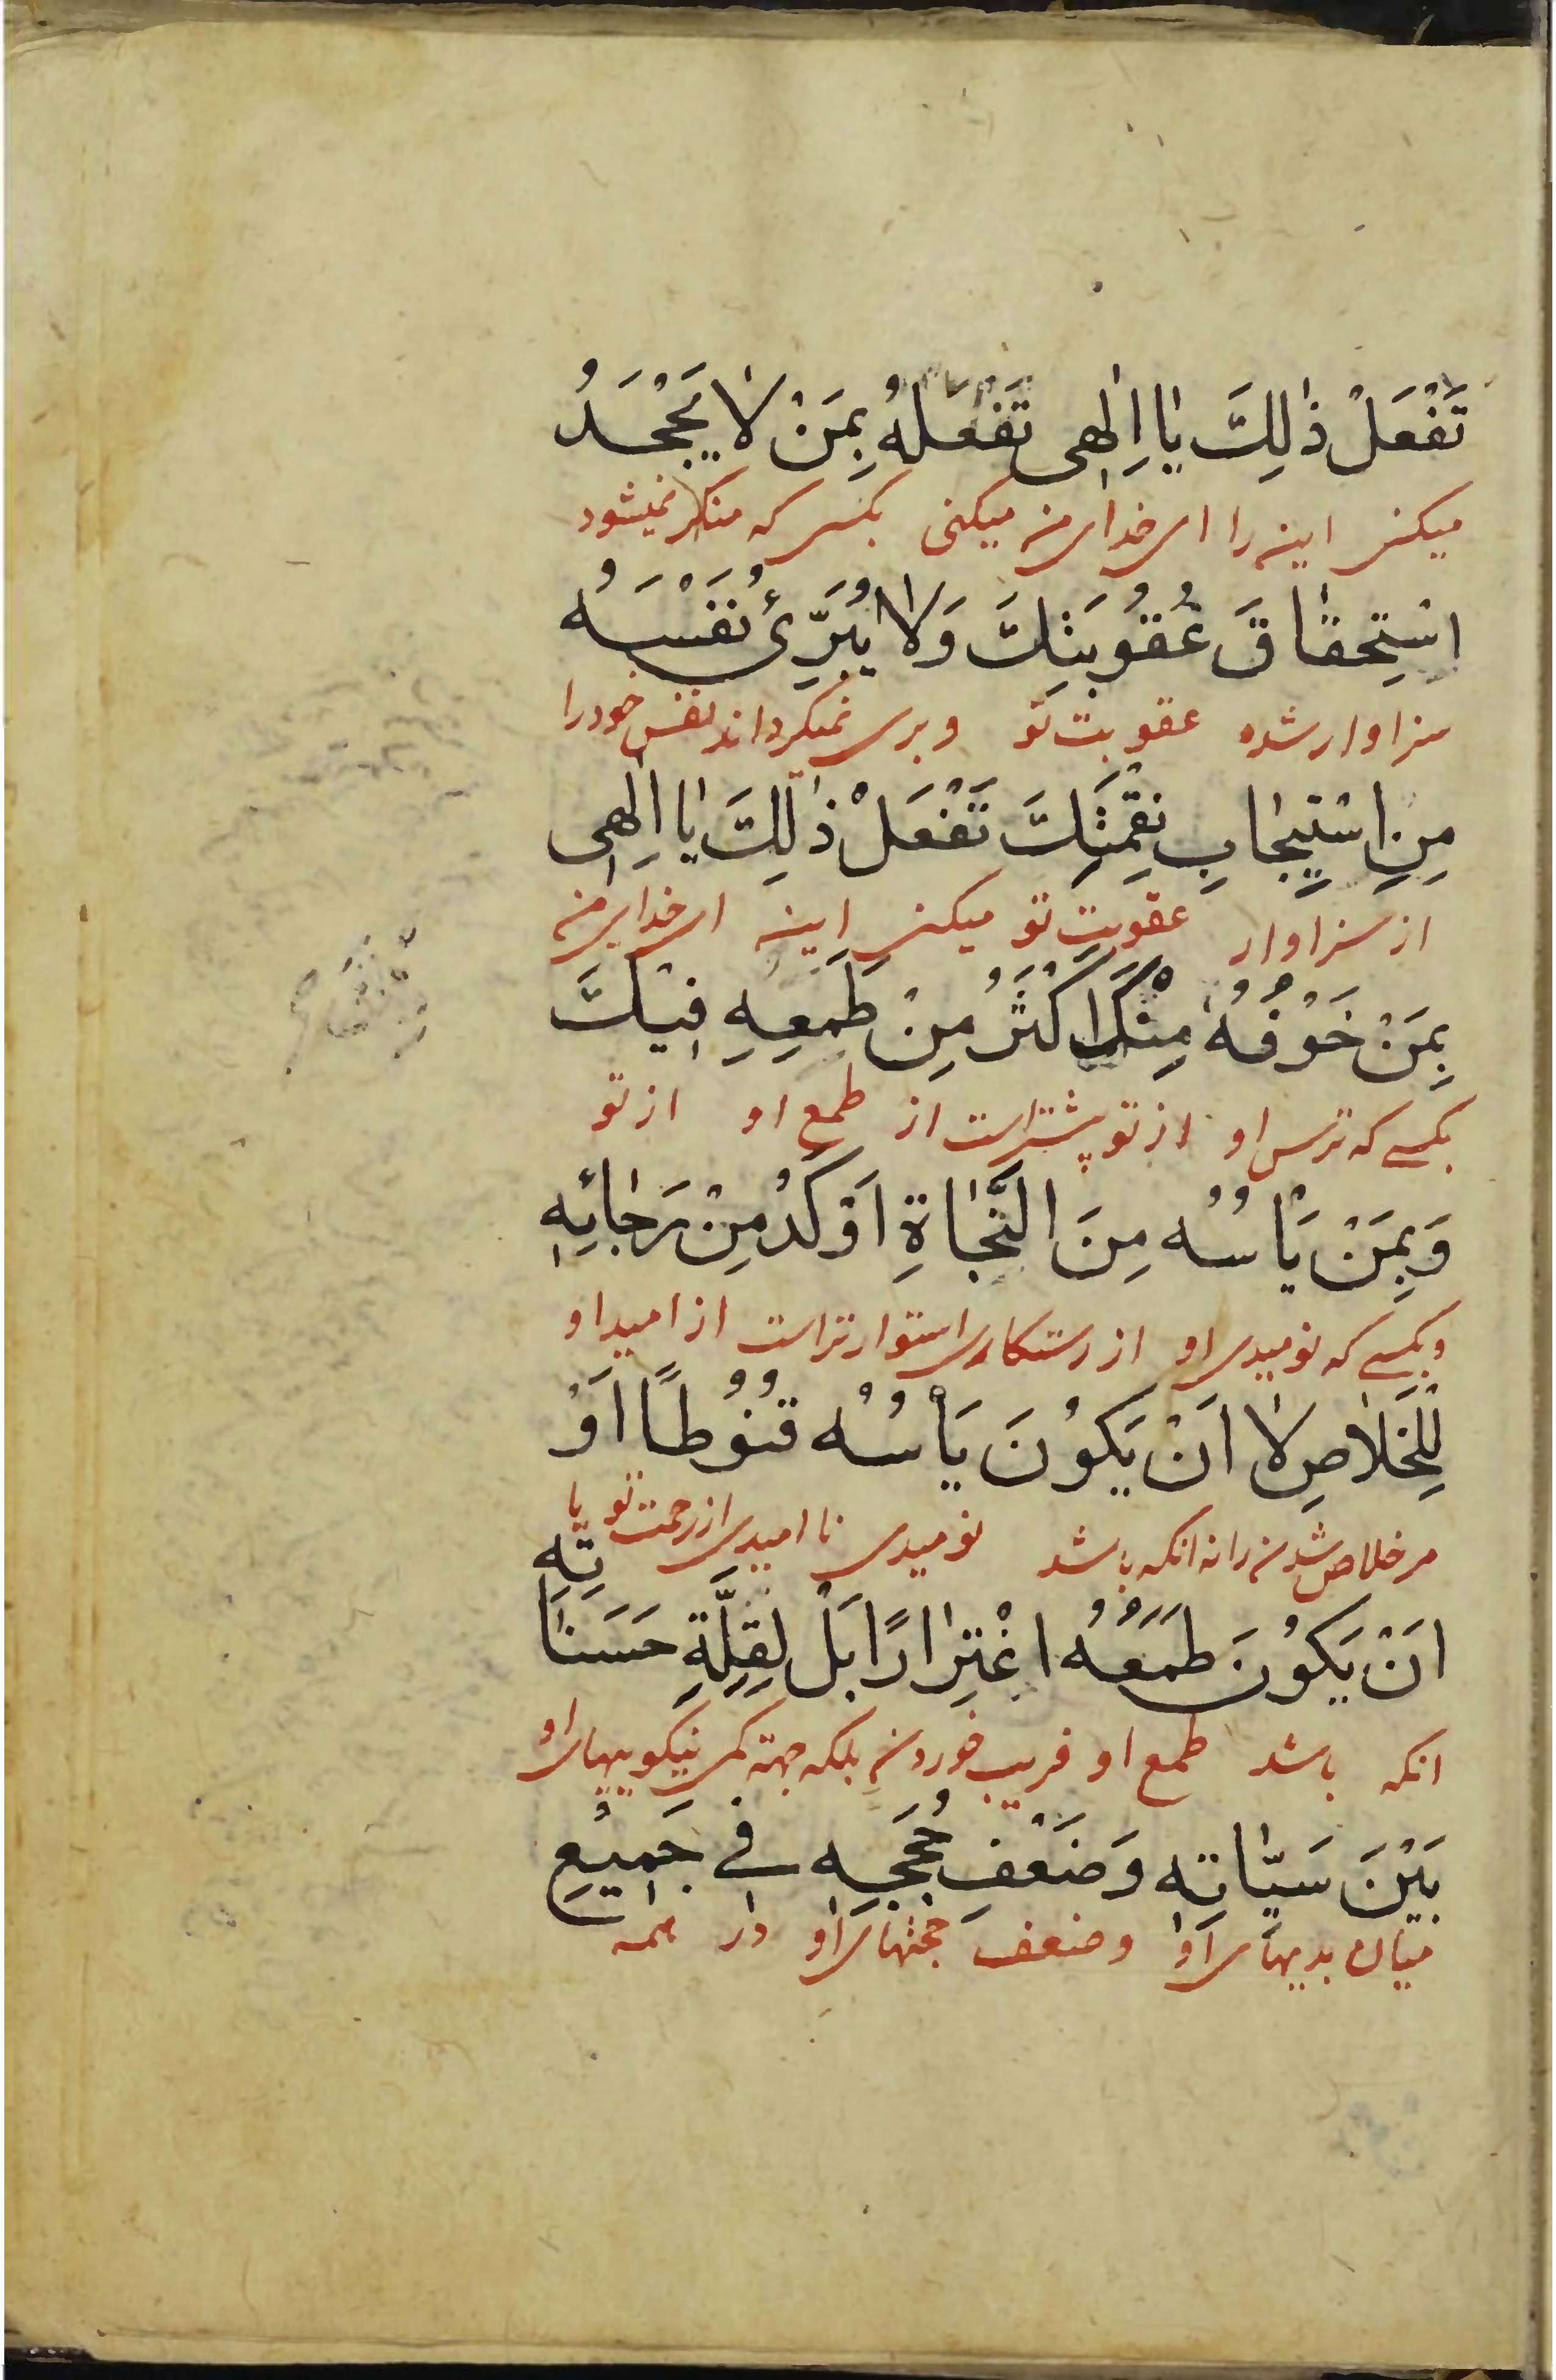 تَفْعَلْ ذٰلِكَ يٰا اِلٰهى تَفْعَلْهُ بِمَنْ لاٰ يَجْحَدُ
ميكنى اين را اى خداى من ميكنى بكسى كه منكر نميشود
اسْتِحقٰاقَ عُقُوبَتِكَ وَلاٰ يُبَرِّئُ نَفْسَهُ
سزاوار شده عقوبت تو و برى نميگرداند نفس خود را
مِنِ اسْتيجٰابِ نَقِمَتِكَ تَفْعَلْ ذٰلِكَ يٰا اِلٰهى
از سزاوار عقوبت تو ميكنى اين اى خداى من
بِمَنْ خَوْفُهُ مِنْكَ اَكْثَرُ مِنْ طَمَعِهِ فيٖكَ
بكسے كه ترس او از تو بيشتر است از طمع او از تو
وَبِمَنْ يَاْسُهُ مِنَ النَّجٰاةِ اَوْكَدُ مِنْ رَجٰائِهِ
و بكسے كه نوميدى او از رستكارى استوارتر است از اميد او
لِلْخَلاٰصِ لاٰ اَنْ يَكُوْنَ يَاْسُهُ قُنُوْطًا اَوْ
مر خلاص شدن را نه انكه باشد نوميدى نا اميدى از رحمت تو يا
اَنْ يَكُوْنَ طَمَعُهُ اغْتِرٰارًا بَلْ لِقِلَّةِ حَسَنٰاتِهِ
انكه باشد طمع او فريب خوردن بلكه جهة كمى نيكوييهاى او
بَيْنَ سَيّئٰاتِهِ وَضَعْفِ حُجَجِهِ فے جَميٖعِ
ميان بديهاى او و ضعف حجتهاى او در همه